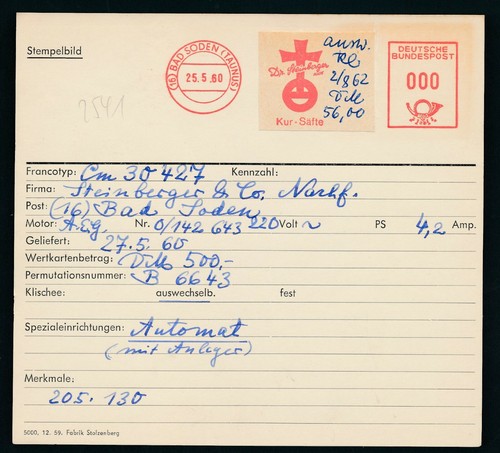 Stempelbild
(16) BAD SODEN (TAUNUS)
25.5.60
Dr. Steinberger
Kur-Säfte
ausw.
2/862
DM
56,00
DEUTSCHE
BUNDESPOST
000
2541
Francotyp: Cm 30427 Kennzahl:
Firma: Steinberger & Co. Nachf.
Post: (16) Bad Soden
Motor: A.E.G. Nr. 0/142 643 220 Volt ~ PS 4,2 Amp.
Geliefert: 27.5.60
Wertkartenbetrag: DM 500,-
Permutationsnummer: B 6643
Klischee: auswechselb. fest
Spezialeinrichtungen: Automat
(mit Anleger)
Merkmale:
205. 130
5000, 12. 59. Fabrik Stolzenberg